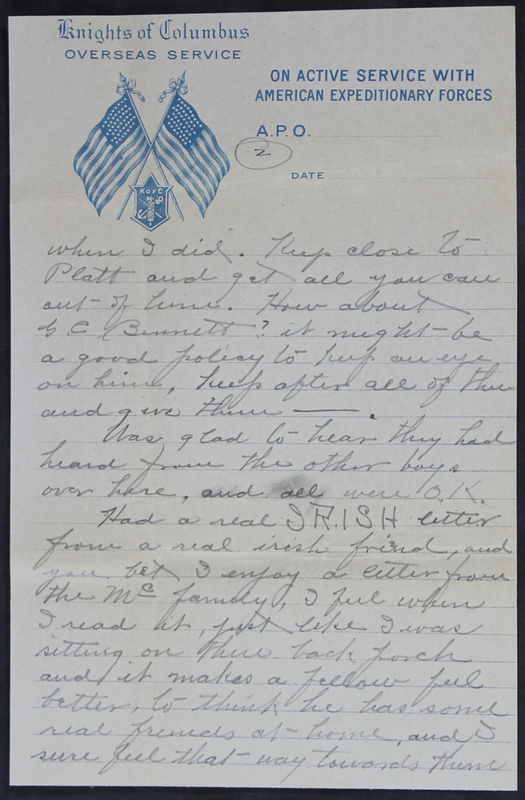 Knights of Columbus
OVERSEAS SERVICE
ON ACTIVE SERVICE WITH
AMERICAN EXPEDITIONARY FORCES
A.P.O.
2
DATE
K of C
when I did. Keep close to
Platt and get all you can
out of him. How about
G. C. Bennett? it might be
a good policy to keep an eye
on him, keep after all of them
and give them —.
Was glad to hear they had
heard from the other boys
over here, and all were O.K.
Had a real IRISH letter
from a real irish friend, and
you bet I enjoy a letter from
the Mc family, I feel when
I read it, just like I was
sitting on there back porch
and it makes a fellow feel
better, to think he has some
real friends at home, and I
sure feel that way towards them